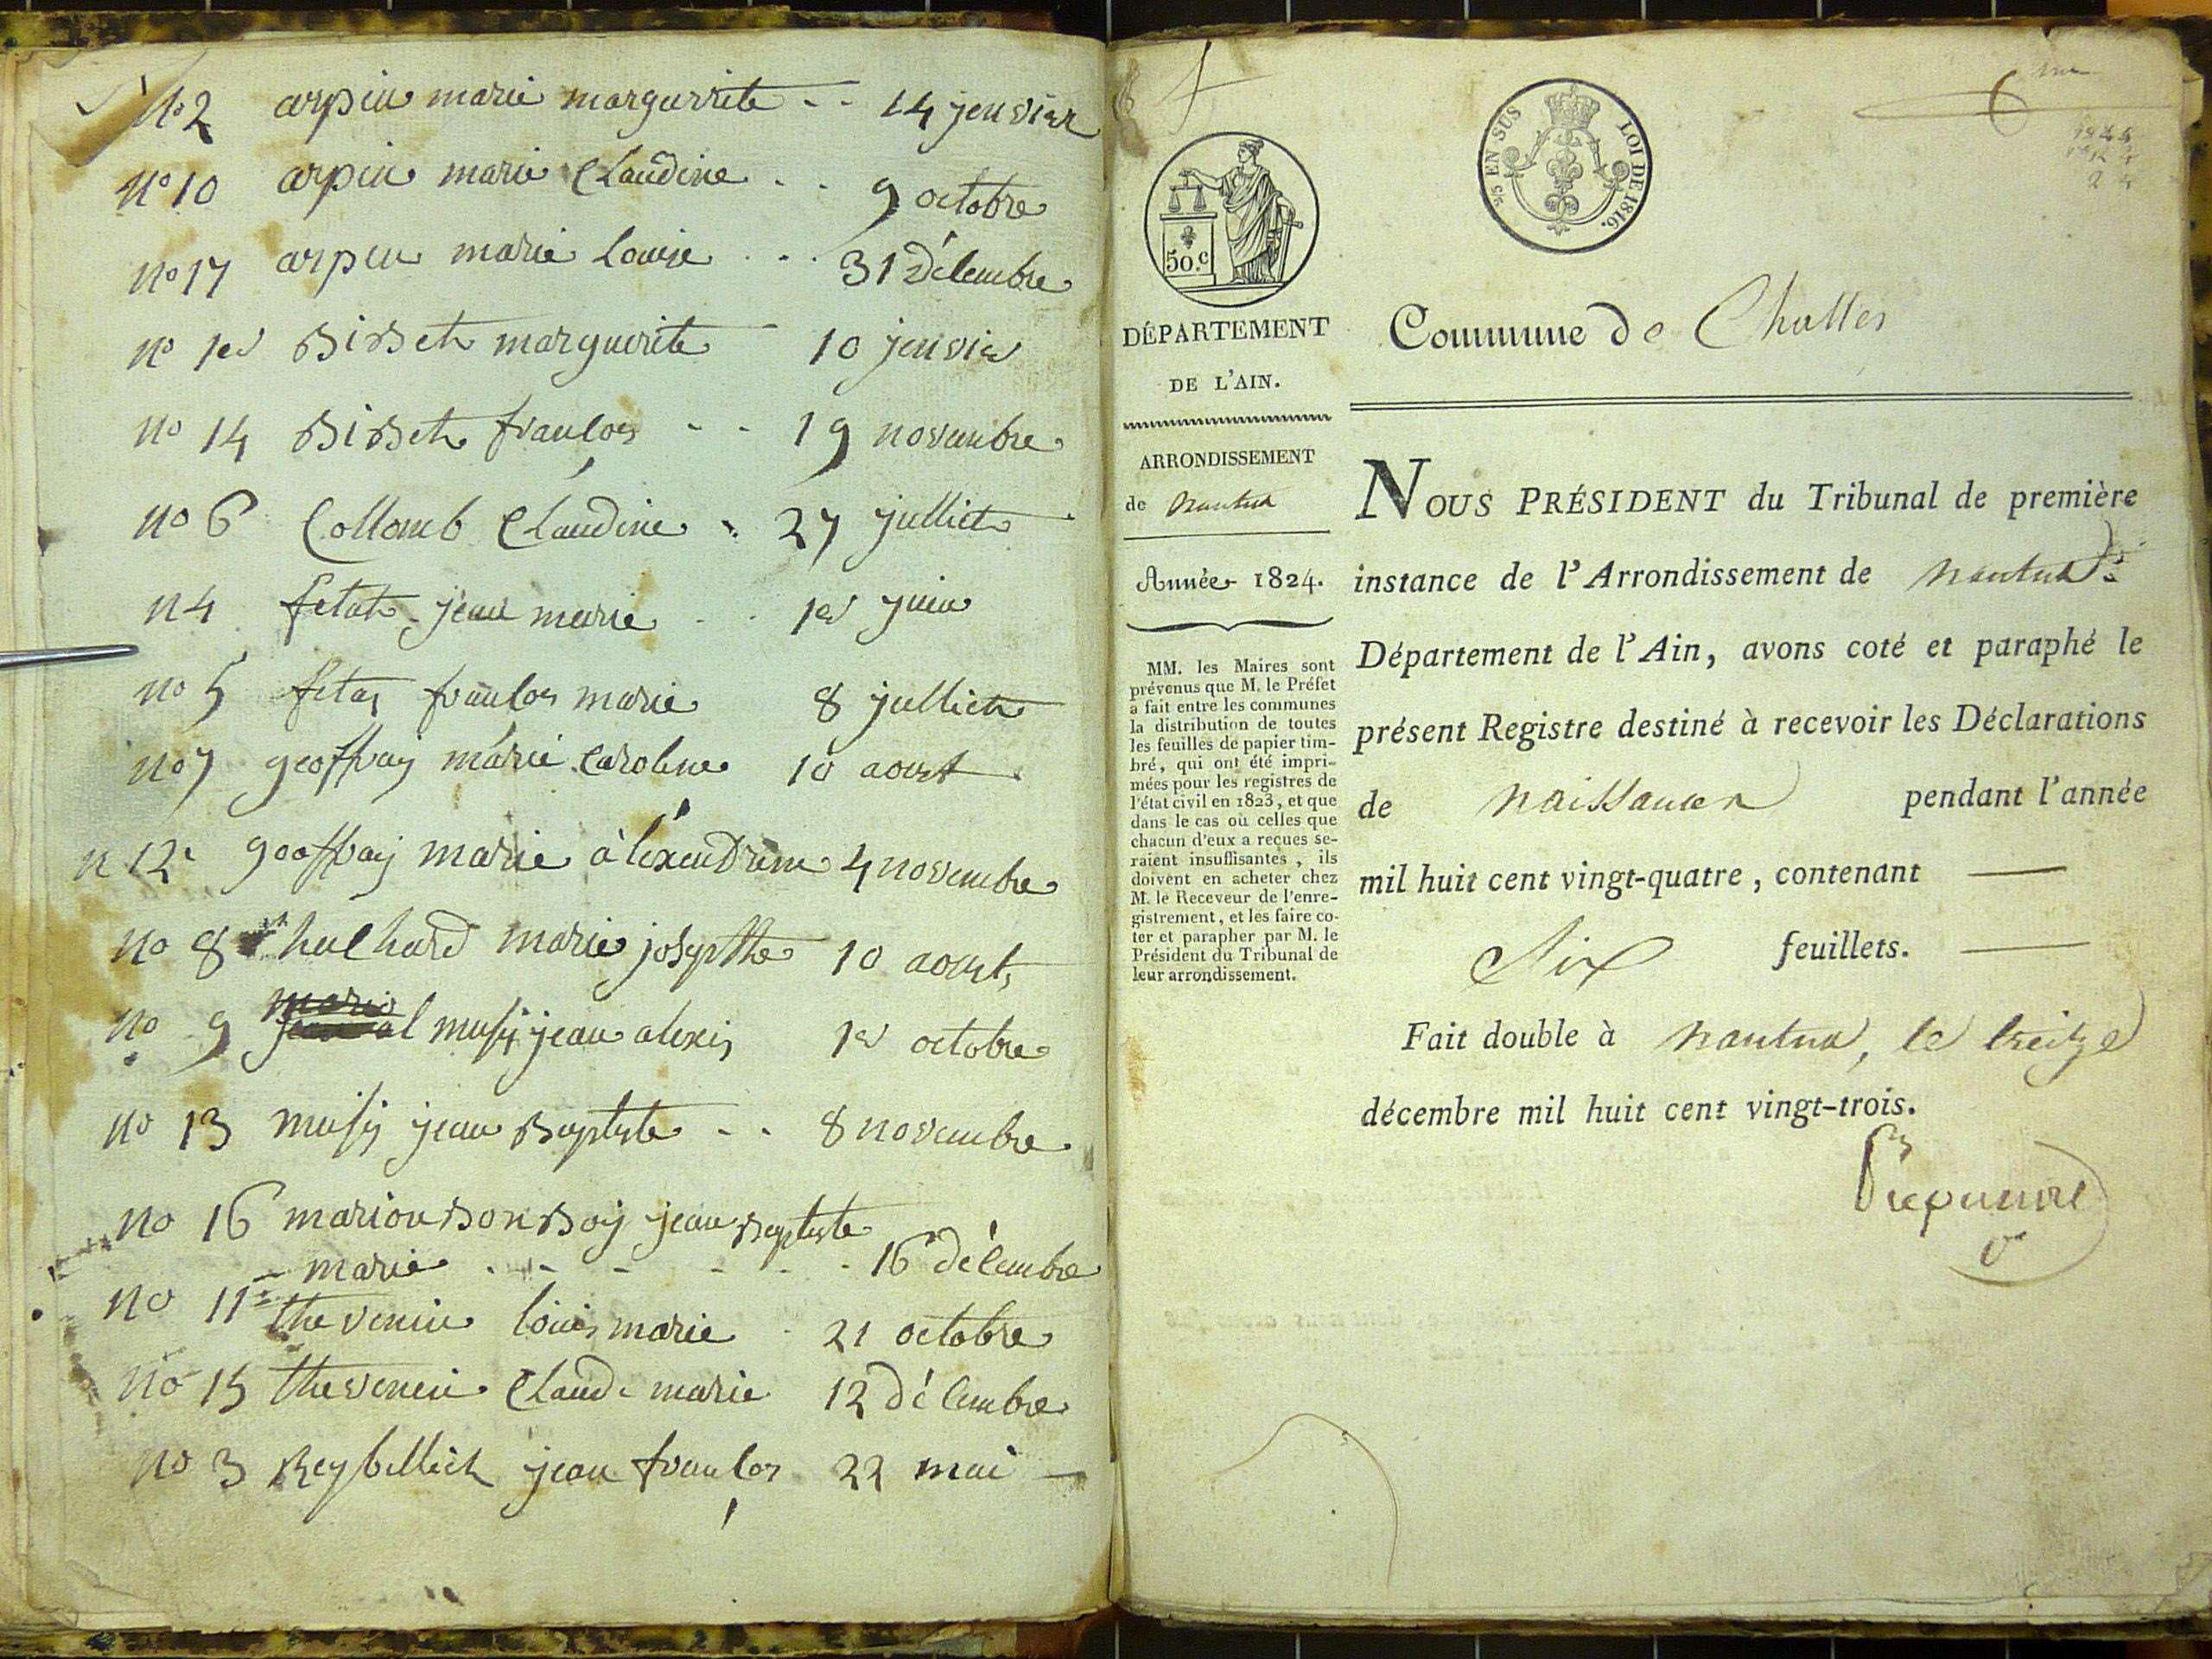 no 2 arpin marie margurrite - - 14 jenvier
no 10 arpin marie Claudine - - 9 octobre
no 17 arpin marie Louise - - - 31 décembre
no 1er Bibbet marguerite - 10 jenvier
no 14 Bibbet françois - - 19 novembre
no 6 Collomb Claudine - 27 julliet
n 4 fetat jean marie - - 1er juin
no 5 fetas françois marie 8 julliet
no 7 geoffray marie Caroline 10 aoust
n 12 geoffray marie àléxendrine 4 novembre
no 8 hulhard marie josepthe 10 aoust
marie
no 9 musy jean alexis 1er octobre
no 13 musy jean Baptiste - - 8 novembre
no 16 marion Bonboy jean Baptiste
marie - - - - - - 16 décembre
no 11 thevenin louis marie - 21 octobre
no 15 thevenin Claude marie 12 décembre
no 3 Reybilliet jean françois 22 mai
6me
50.c
EN SUS LOI DE 1816.
DÉPARTEMENT
DE L'AIN.
ARRONDISSEMENT
de nantua
Année 1824.
MM. les Maires sont
prévenus que M. le Préfet
a fait entre les communes
la distribution de toutes
les feuilles de papier tim-
bré, qui ont été impri-
mées pour les registres de
l'état civil en 1823, et que
dans le cas où celles que
chacun d'eux a reçues se-
raient insuffisantes, ils
doivent en acheter chez
M. le Receveur de l'enre-
gistrement, et les faire co-
ter et parapher par M. le
Président du Tribunal de
leur arrondissement.
Commune de Challes
NOUS PRÉSIDENT du Tribunal de première
instance de l'Arrondissement de nantua
Département de l'Ain, avons coté et paraphé le
présent Registre destiné à recevoir les Déclarations
de naissances pendant l'année
mil huit cent vingt-quatre, contenant
Six feuillets.
Fait double à nantua, le treize
décembre mil huit cent vingt-trois.